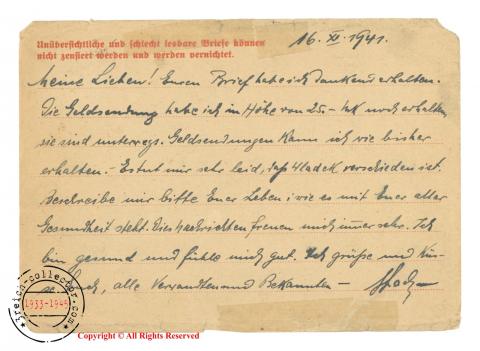 Unübersichtliche und schlecht lesbare Briefe können
nicht zensiert werden und werden vernichtet.
16. XI. 1941.
Meine Lieben! Euren Brief habe ich dankend erhalten.
Die Geldsendung habe ich in Höhe von 25.- Mk noch erhalten,
sie sind unterwegs. Geldsendungen kann ich wie bisher
erhalten. Es tut mir sehr leid, daß Hladek verschieden ist.
Beschreibe mir bitte Euer Leben, wie es mit Euer aller
Gesundheit steht. Dies Nachrichten freuen mich immer sehr. Ich
bin gesund und fühle mich gut. Ich grüße und küs-
se Euch, alle Verwandten und Bekannten –
zreich-collector.com
1933-1945
Copyright © All Rights Reserved